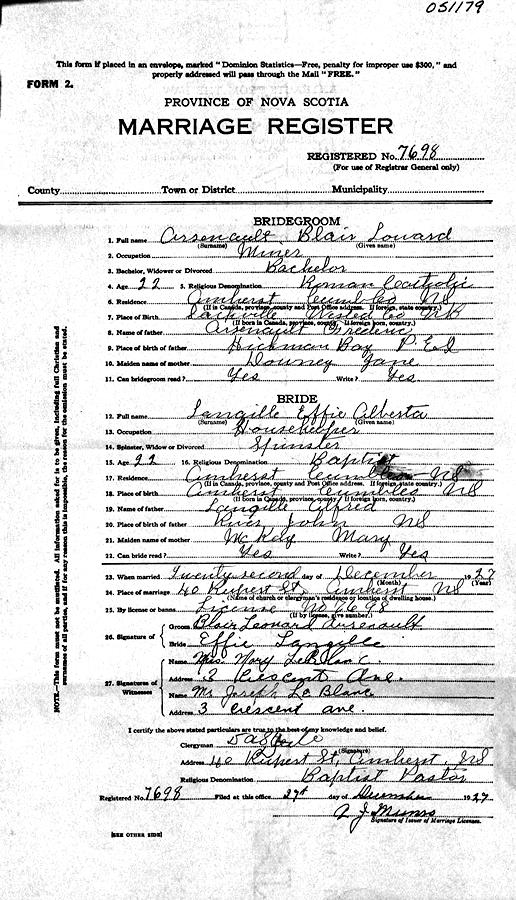 051179
This form if placed in an envelope, marked "Dominion Statistics—Free, penalty for improper use $300," and
properly addressed will pass through the Mail "FREE."
FORM 2.
PROVINCE OF NOVA SCOTIA
MARRIAGE REGISTER
REGISTERED No. 7698
(For use of Registrar General only)
County Town or District Municipality
BRIDEGROOM
1. Full name Arsenault Blair Leonard
(Surname) (Given name)
2. Occupation Miner
3. Bachelor, Widower or Divorced Bachelor
4. Age 22 5. Religious Denomination Roman Catholic
6. Residence Amherst Cumb Co NS
(If in Canada, province, county and Post Office address. If foreign, state country.)
7. Place of Birth Sackville West'd Co NB
(If born in Canada, province, county. If foreign born, country.)
8. Name of father Arsenault Frederic
9. Place of birth of father Hickman Bay P.E.I
10. Maiden name of mother Downey Jane
11. Can bridegroom read? Yes Write? Yes
BRIDE
12. Full name Langille Effie Alberta
(Surname) (Given name)
13. Occupation Househelper
14. Spinster, Widow or Divorced Spinster
15. Age 22 16. Religious Denomination Baptist
17. Residence Amherst Cumb Co NS
(If in Canada, province, county and Post Office address. If foreign, state country.)
18. Place of birth Amherst Cumb Co NS
(If born in Canada, province, county. If foreign born, country.)
19. Name of father Langille Alfred
20. Place of birth of father River John NS
21. Maiden name of mother McKay Mary
22. Can bride read? Yes Write? Yes
23. When married Twenty second day of December 1927
(Month) (Year)
24. Place of marriage 40 Rupert St, Amherst NS
(Name of church or clergyman's residence or location of dwelling house.)
25. By license or banns License No 7698
(If by license, give number.)
26. Signature of
Groom Blair Leonard Arsenault
Bride Effie Langille
27. Signatures of Witnesses
Name Mrs. Mary LeBlanc.
Address 3 Crescent Ave.
Name Mr Joseph LeBlanc
Address 3 Crescent ave.
I certify the above stated particulars are true to the best of my knowledge and belief.
Clergyman
(Signature)
Address 40 Rupert St, Amherst, NS
Religious Denomination Baptist Pastor
Registered No. 7698 Filed at this office 27th day of December 1927
A J Munro
Signature of Issuer of Marriage Licenses.
[SEE OTHER SIDE]
NOTE.—This form must not be mutilated. All information asked for is to be given, including full Christian and
surnames of all parties, and if for any reason this is impossible, the reason for the omission must be stated.